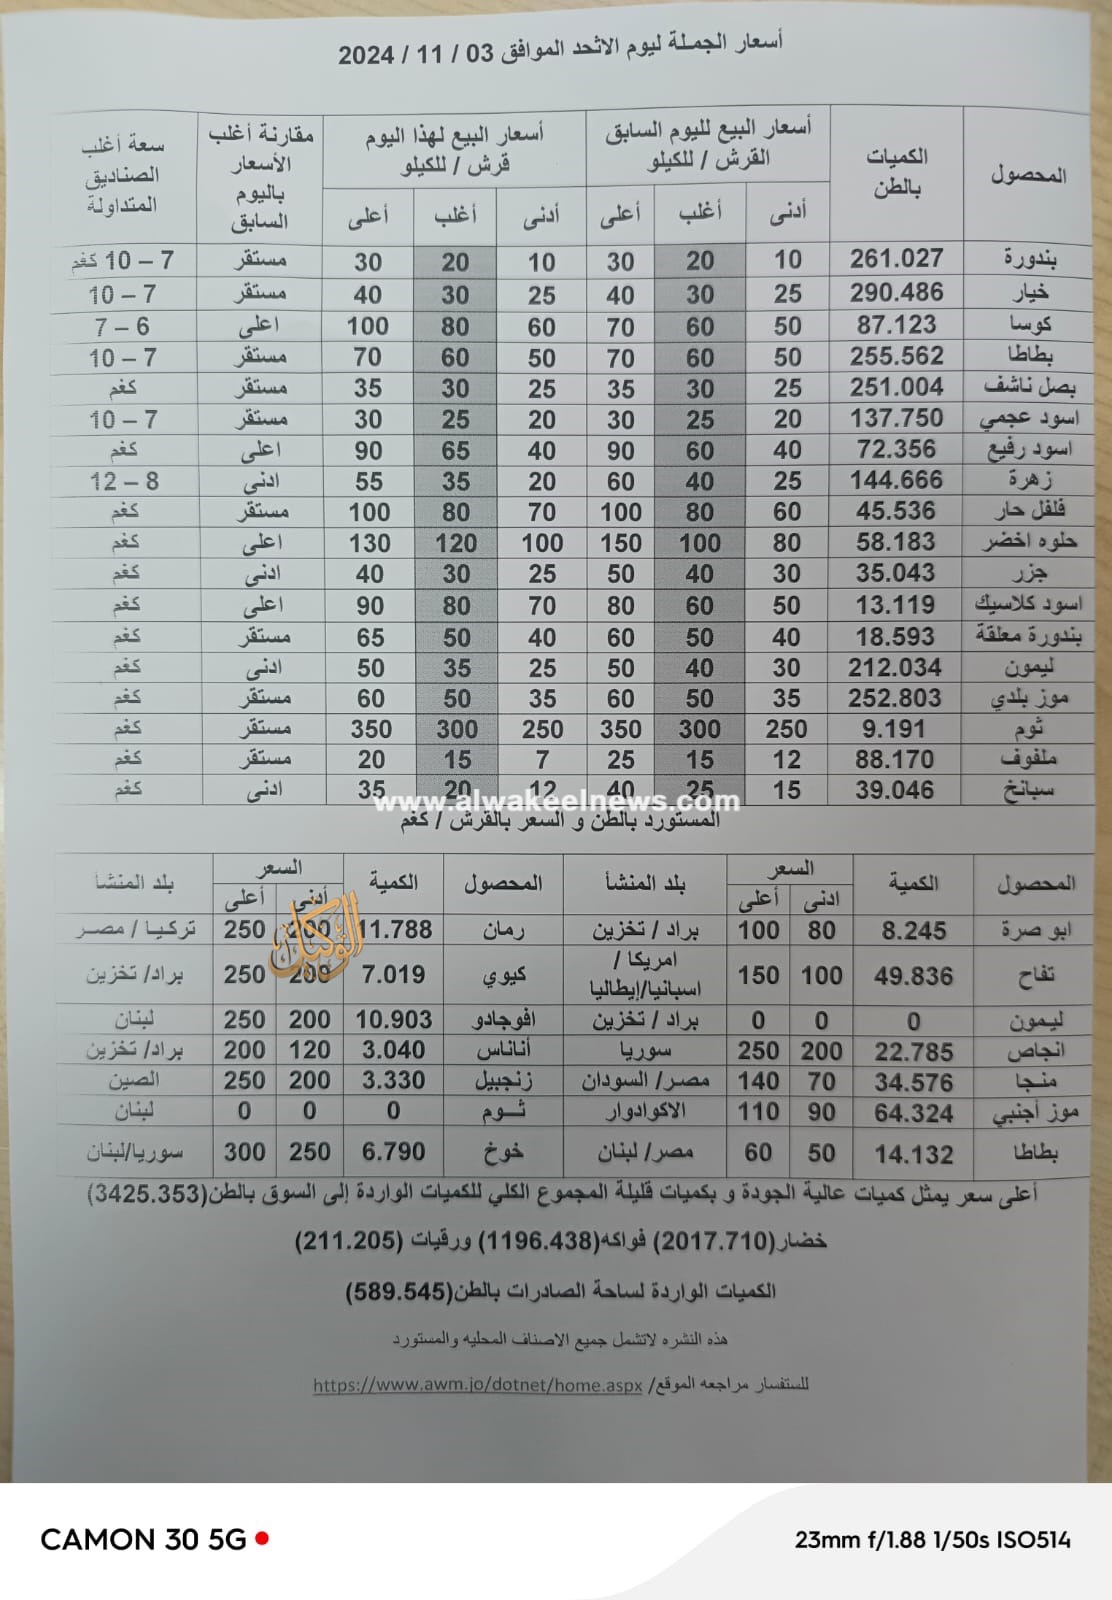 أسعار الجملة ليوم الاثحد الموافق 03 / 11 / 2024
المحصول الكميات بالطن أسعار البيع لليوم السابق القرش / للكيلو أسعار البيع لهذا اليوم قرش / للكيلو مقارنة أغلب الأسعار باليوم السابق سعة أغلب الصناديق المتداولة
أدنى أغلب أعلى أدنى أغلب أعلى
بندورة 261.027 10 20 30 10 20 30 مستقر 7 – 10 كغم
خيار 290.486 25 30 40 25 30 40 مستقر 7 – 10
كوسا 87.123 50 60 70 60 80 100 اعلى 6 – 7
بطاطا 255.562 50 60 70 50 60 70 مستقر 7 – 10
بصل ناشف 251.004 25 30 35 25 30 35 مستقر كغم
اسود عجمي 137.750 20 25 30 20 25 30 مستقر 7 – 10
اسود رفيع 72.356 40 60 90 40 65 90 اعلى كغم
زهرة 144.666 25 40 60 20 35 55 ادنى 8 – 12
فلفل حار 45.536 60 80 100 70 80 100 مستقر كغم
حلوه اخضر 58.183 80 100 150 100 120 130 اعلى كغم
جزر 35.043 30 40 50 25 30 40 ادنى كغم
اسود كلاسيك 13.119 50 60 80 70 80 90 اعلى كغم
بندورة معلقة 18.593 40 50 60 40 50 65 مستقر كغم
ليمون 212.034 30 40 50 25 35 50 ادنى كغم
موز بلدي 252.803 35 50 60 35 50 60 مستقر كغم
ثوم 9.191 250 300 350 250 300 350 مستقر كغم
ملفوف 88.170 12 15 25 7 15 20 مستقر كغم
سبانخ 39.046 15 25 40 12 20 35 ادنى كغم
www.alwakeelnews.com
المستورد بالطن و السعر بالقرش / كغم
المحصول الكمية السعر بلد المنشأ المحصول الكمية السعر بلد المنشأ
ادنى أعلى أدنى أعلى
ابو صرة 8.245 80 100 براد / تخزين رمان 11.788 200 250 تركيا / مصر
تفاح 49.836 100 150 امريكا / اسبانيا/إيطاليا كيوي 7.019 200 250 براد/ تخزين
ليمون 0 0 0 براد / تخزين افوجادو 10.903 200 250 لبنان
انجاص 22.785 200 250 سوريا أناناس 3.040 120 200 براد/ تخزين
منجا 34.576 70 140 مصر/ السودان زنجبيل 3.330 200 250 الصين
موز أجنبي 64.324 90 110 الاكوادوار ثوم 0 0 0 لبنان
بطاطا 14.132 50 60 مصر/ لبنان خوخ 6.790 250 300 سوريا/لبنان
الوكيل
أعلى سعر يمثل كميات عالية الجودة و بكميات قليلة المجموع الكلي للكميات الواردة إلى السوق بالطن(3425.353)
خضار(2017.710) فواكه(1196.438) ورقيات (211.205)
الكميات الواردة لساحة الصادرات بالطن(589.545)
هذه النشره لاتشمل جميع الاصناف المحليه والمستورد
للستفسار مراجعه الموقع/ https://www.awm.jo/dotnet/home.aspx
CAMON 30 5G
23mm f/1.88 1/50s ISO514